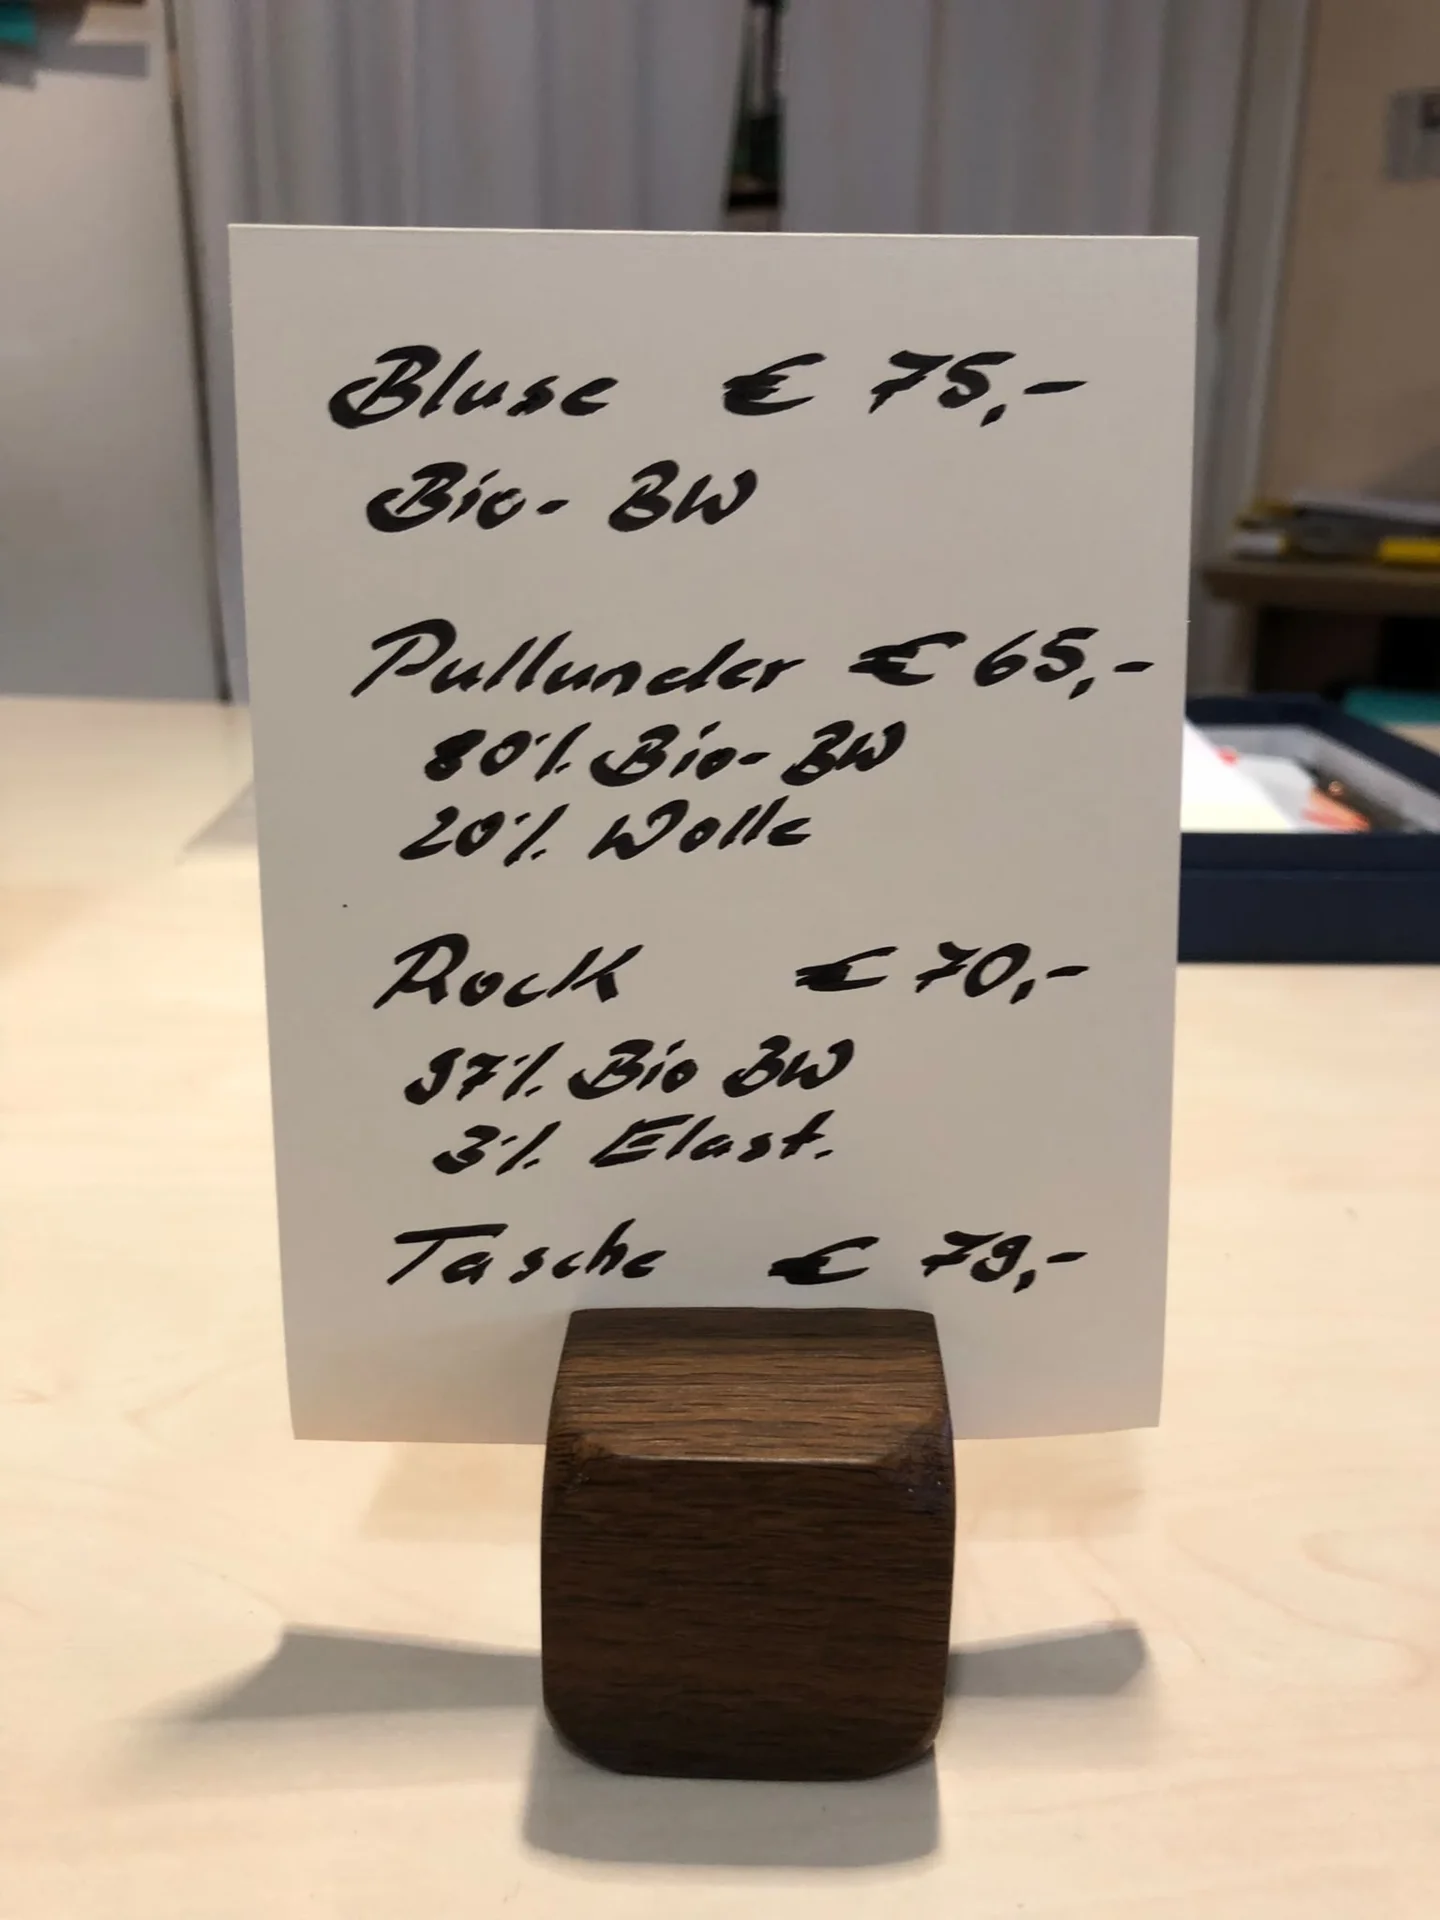 Bluse € 75,-
Bio-BW
Pullunder € 65,-
80% Bio-BW
20% Wolle
Rock € 70,-
97% Bio BW
3% Elast.
Tasche € 79,-